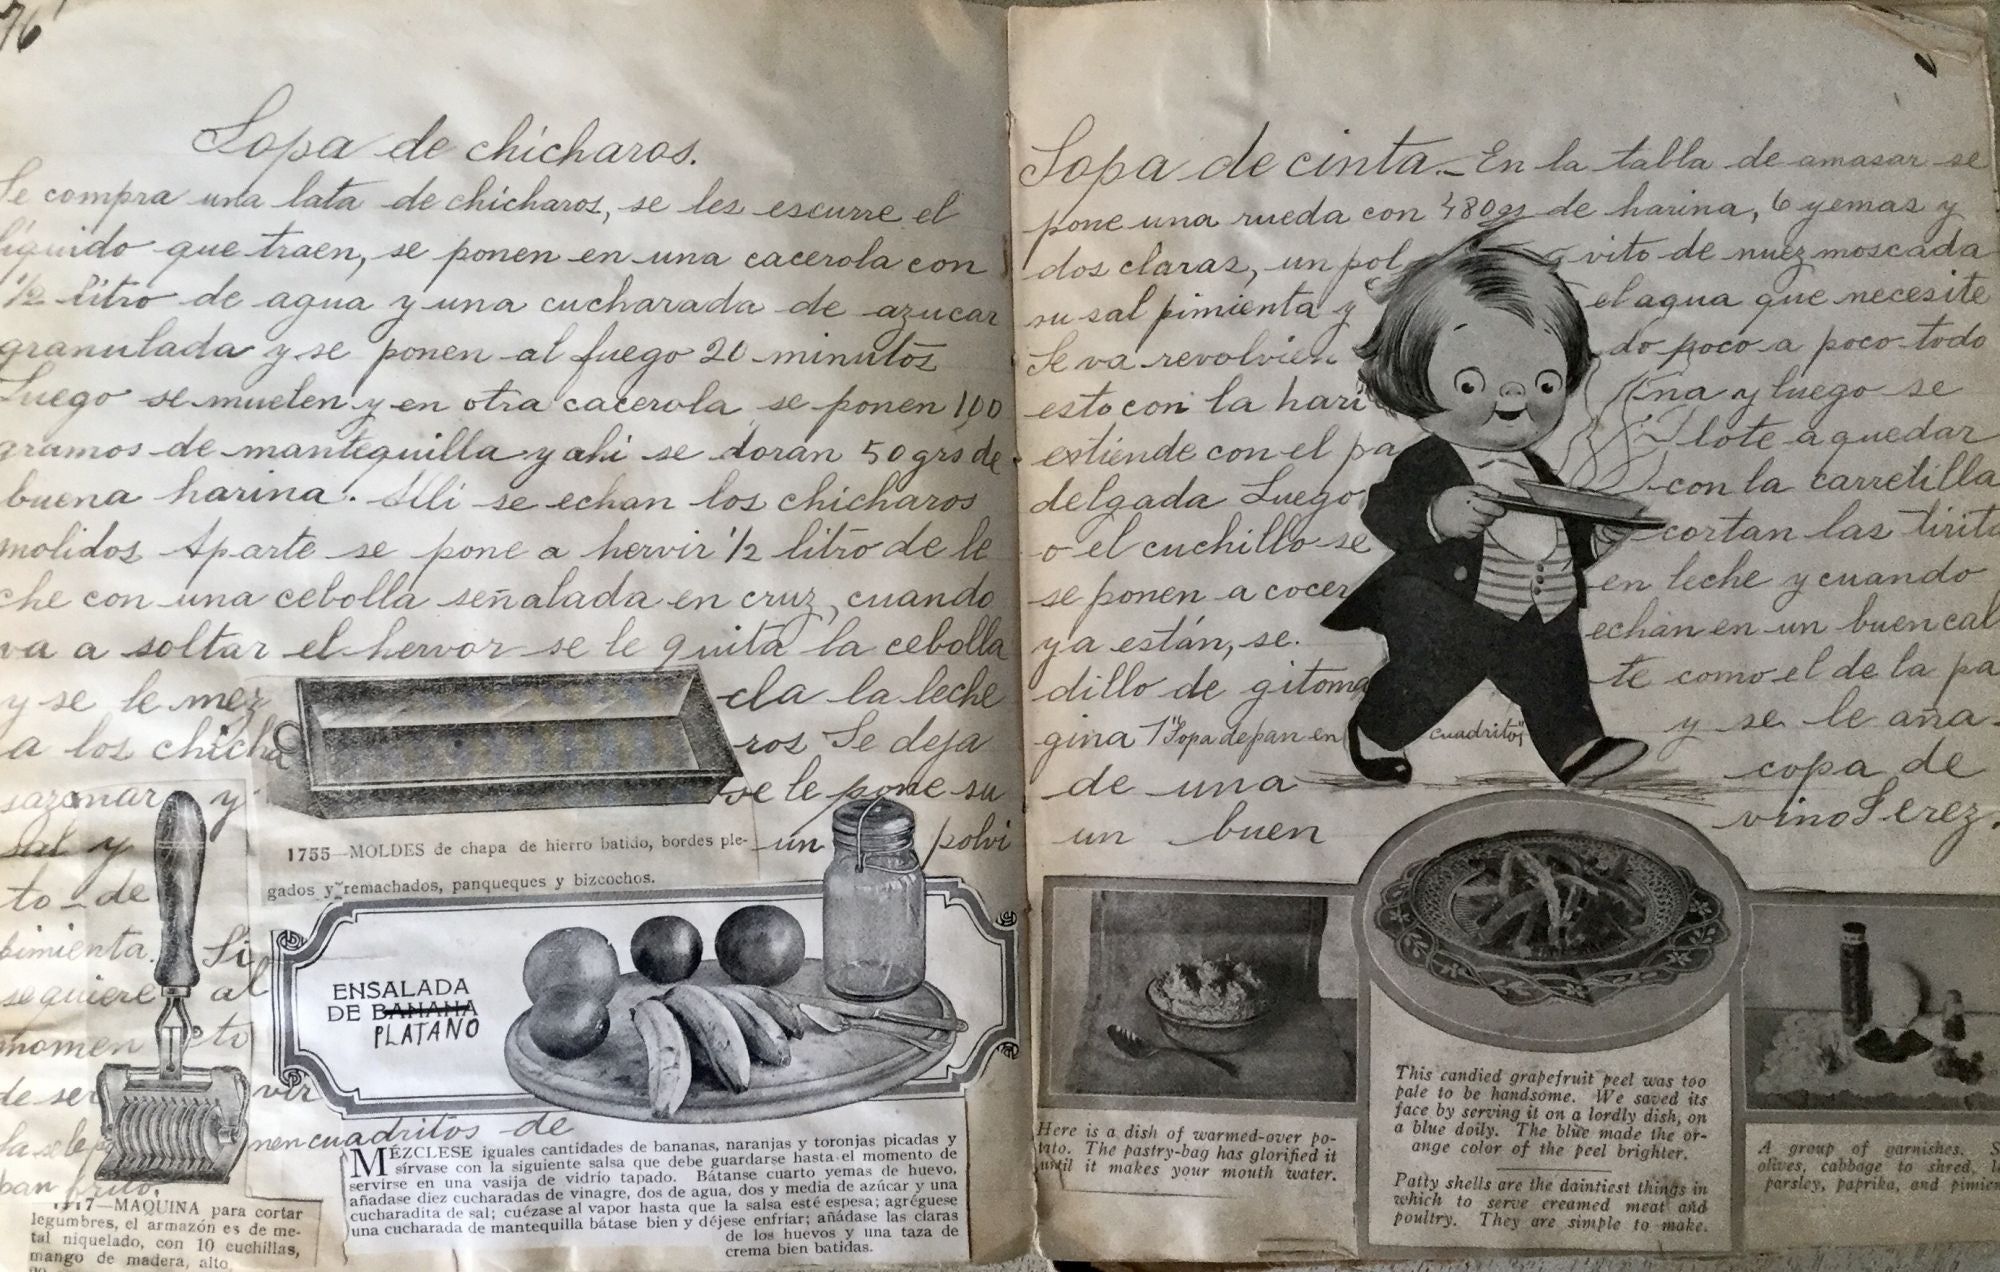 76
Sopa de chicharos.
Se compra una lata de chicharos, se les escurre el
liquido que traen, se ponen en una cacerola con
1/2 litro de agua y una cucharada de azucar
granulada y se ponen al fuego 20 minutos
Luego se muelen y en otra cacerola se ponen 100
gramos de mantequilla y ahi se doran 50 grs de
buena harina. Alli se echan los chicharos
molidos Aparte se pone a hervir 1/2 litro de le
che con una cebolla señalada en cruz, cuando
va a soltar el hervor se le quita la cebolla
y se le mez cla la leche
a los chicha ros Se deja
sazonar y se le pone su
sal y un polvi
to de
pimienta. Si
se quiere al
momen to
de ser vir
la se le ponen cuadritos de
pan frito.
1755—MOLDES de chapa de hierro batido, bordes ple-
gados y remachados, panqueques y bizcochos.
1717—MAQUINA para cortar
legumbres, el armazón es de me-
tal niquelado, con 10 cuchillas,
mango de madera, alto
ENSALADA
DE BANANA
PLATANO
MÉZCLESE iguales cantidades de bananas, naranjas y toronjas picadas y
sírvase con la siguiente salsa que debe guardarse hasta el momento de
servirse en una vasija de vidrio tapado. Bátanse cuarto yemas de huevo,
añadase diez cucharadas de vinagre, dos de agua, dos y media de azúcar y una
cucharadita de sal; cuézase al vapor hasta que la salsa esté espesa; agréguese
una cucharada de mantequilla bátase bien y déjese enfriar; añádase las claras
de los huevos y una taza de
crema bien batidas.
Sopa de cinta.— En la tabla de amasar se
pone una rueda con 480 gs de harina, 6 yemas y
dos claras, un pol vito de nuez moscada
su sal pimienta y el agua que necesite
Se va revolvien do poco a poco todo
esto con la hari na y luego se
extiende con el pa lote a quedar
delgada Luego con la carretilla
o el cuchillo se cortan las tirita
se ponen a cocer en leche y cuando
ya están, se. echan en un buen cal
dillo de gitoma te como el de la pa
gina 7 "Sopa de pan en cuadritos" y se le aña-
de una copa de
un buen vino Jerez.
Here is a dish of warmed-over po-
tato. The pastry-bag has glorified it
until it makes your mouth water.
This candied grapefruit peel was too
pale to be handsome. We saved its
face by serving it on a lordly dish, on
a blue doily. The blue made the or-
ange color of the peel brighter.
Patty shells are the daintiest things in
which to serve creamed meat and
poultry. They are simple to make.
A group of garnishes.
olives, cabbage to shred,
parsley, paprika, and pimien